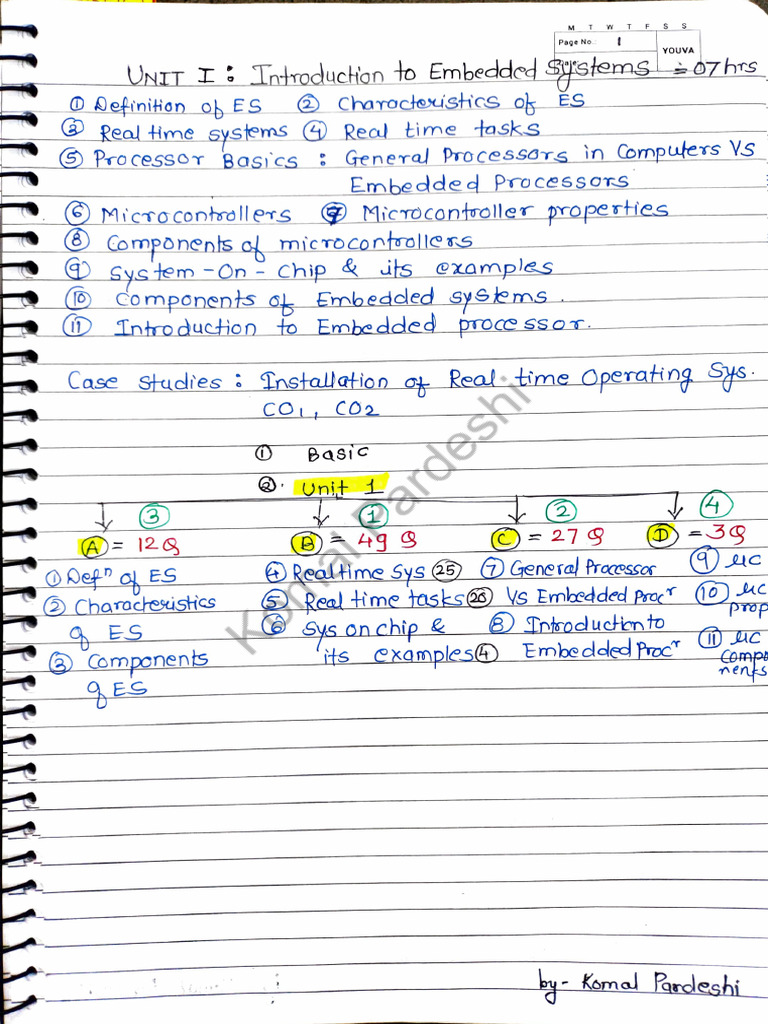 M T W T F S S
Page No.: 1
YOUVA
UNIT I : Introduction to Embedded Systems = 07 hrs
① Definition of ES ② Characteristics of ES
③ Real time systems ④ Real time tasks
⑤ Processor Basics : General Processors in Computers Vs
Embedded Processors
⑥ Microcontrollers ⑦ Microcontroller properties
⑧ Components of microcontrollers
⑨ System-On-Chip & its examples
⑩ Components of Embedded systems.
⑪ Introduction to Embedded processor.
Case studies : Installation of Real time Operating Sys.
CO1, CO2
① Basic
②. Unit 1
③ ① ② ④
Ⓐ = 12Q Ⓑ = 49 Q Ⓒ = 27 Q Ⓓ = 3Q
① Defn of ES ④ Realtime Sys ㉕ ⑦ General Processor ⑨ μc
② Characteristics ⑤ Real time tasks ⑳ Vs Embedded Procr ⑩ μc
of ES ⑥ Sys on chip & ⑧ Introduction to prop
③ Components its examples ④ Embedded Procr ⑪ μc
of ES compo
nents
Komal Pardeshi
by- Komal Pardeshi